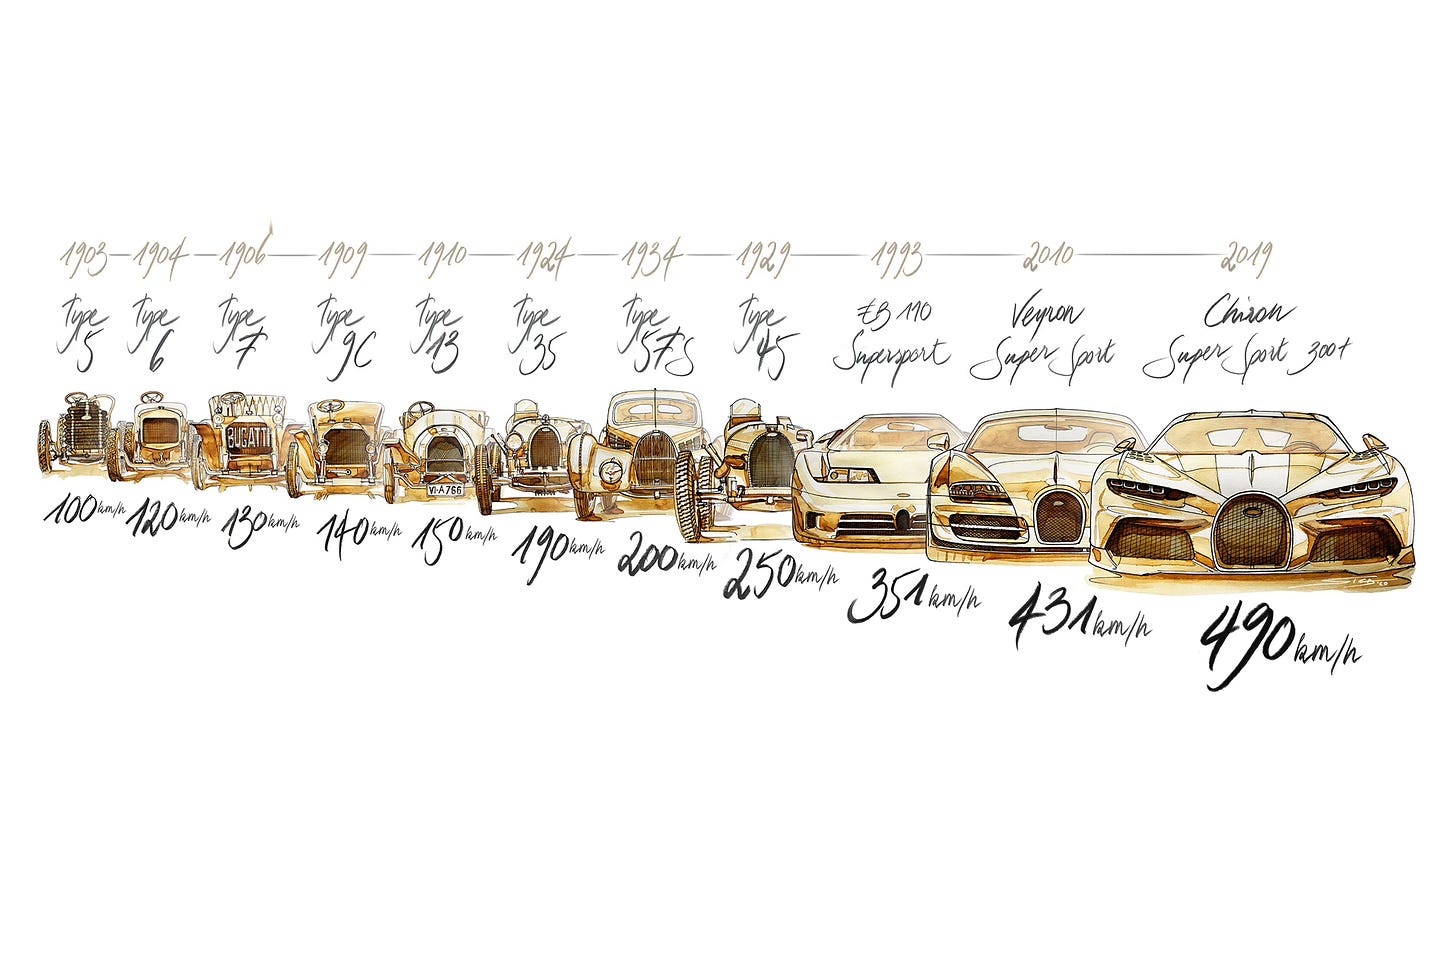 1903 1904 1906 1909 1910 1924 1934 1929 1993 2010 2019
Type Type Type Type Type Type Type Type EB 110 Veyron Chiron
5 6 7 9C 13 35 57S 45 Supersport Super Sport Super Sport 300+
BUGATTI
VI-A766
100km/h 120km/h 130km/h 140km/h 150km/h 190km/h 200km/h 250km/h 351km/h 431km/h 490km/h